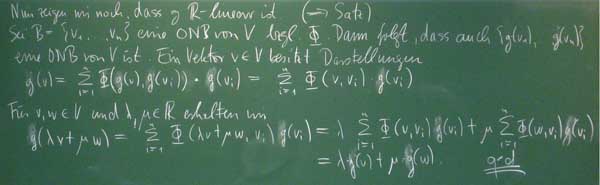 Nun zeigen wir noch, dass g ℝ-linear ist (→ Satz)
Sei B = {v₁, ... vₙ} eine ONB von V bzgl. Φ. Dann folgt, dass auch {g(v₁), g(vₙ)}
eine ONB von V ist. Ein Vektor v ∈ V besitzt Darstellungen
g(v) = Σⁿᵢ₌₁ Φ(g(v), g(vᵢ)) · g(vᵢ) = Σⁿᵢ₌₁ Φ(v, vᵢ) · g(vᵢ)
Für v, w ∈ V und λ, μ ∈ ℝ erhalten wir
g(λv + μw) = Σⁿᵢ₌₁ Φ(λv + μw, vᵢ) g(vᵢ) = λ Σⁿᵢ₌₁ Φ(v, vᵢ) g(vᵢ) + μ Σⁿᵢ₌₁ Φ(w, vᵢ) g(vᵢ)
= λ · g(v) + μ · g(w). qed